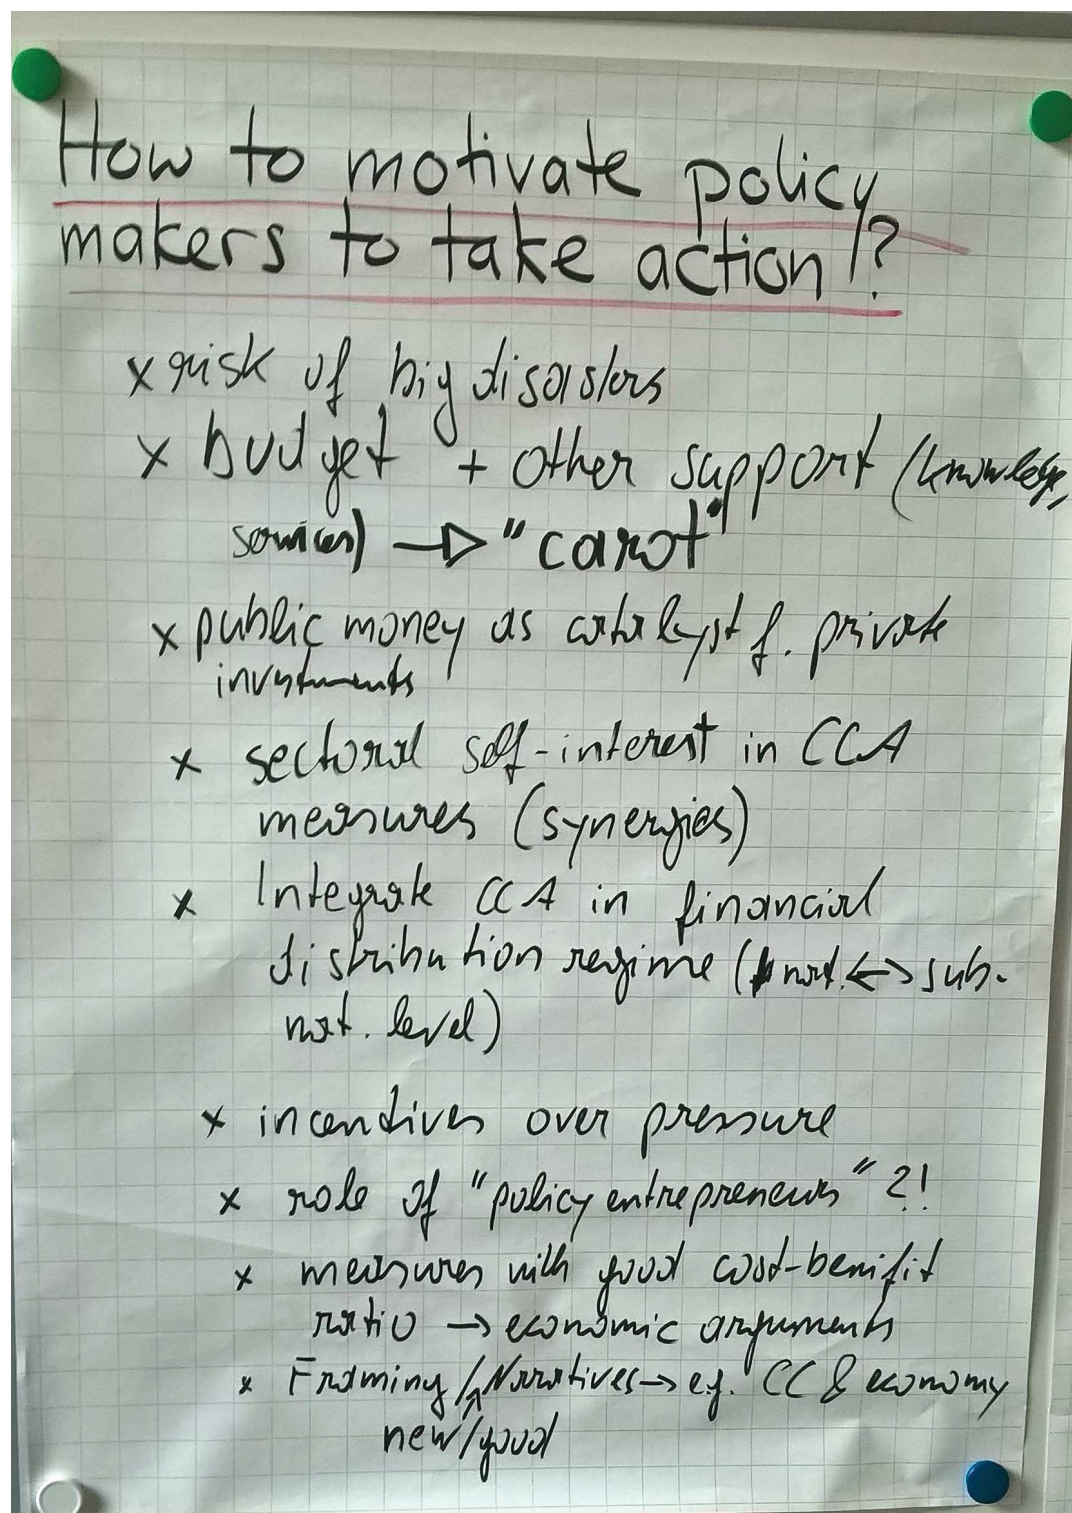 How to motivate policy
makers to take action!?
x risk of big disasters
x budget + other support (knowledge,
services) → "carot"
x public money as catalyst f. private
investments
x sectoral self-interest in CCA
measures (synergies)
x Integrate CCA in financial
distribution regime (nat. ↔ sub-
nat. level)
x incentives over pressure
x role of "policy entrepreneurs" ?!
x measures with good cost-benifit
ratio → economic arguments
x Framing / Narratives → e.g. CC & economy
new/good